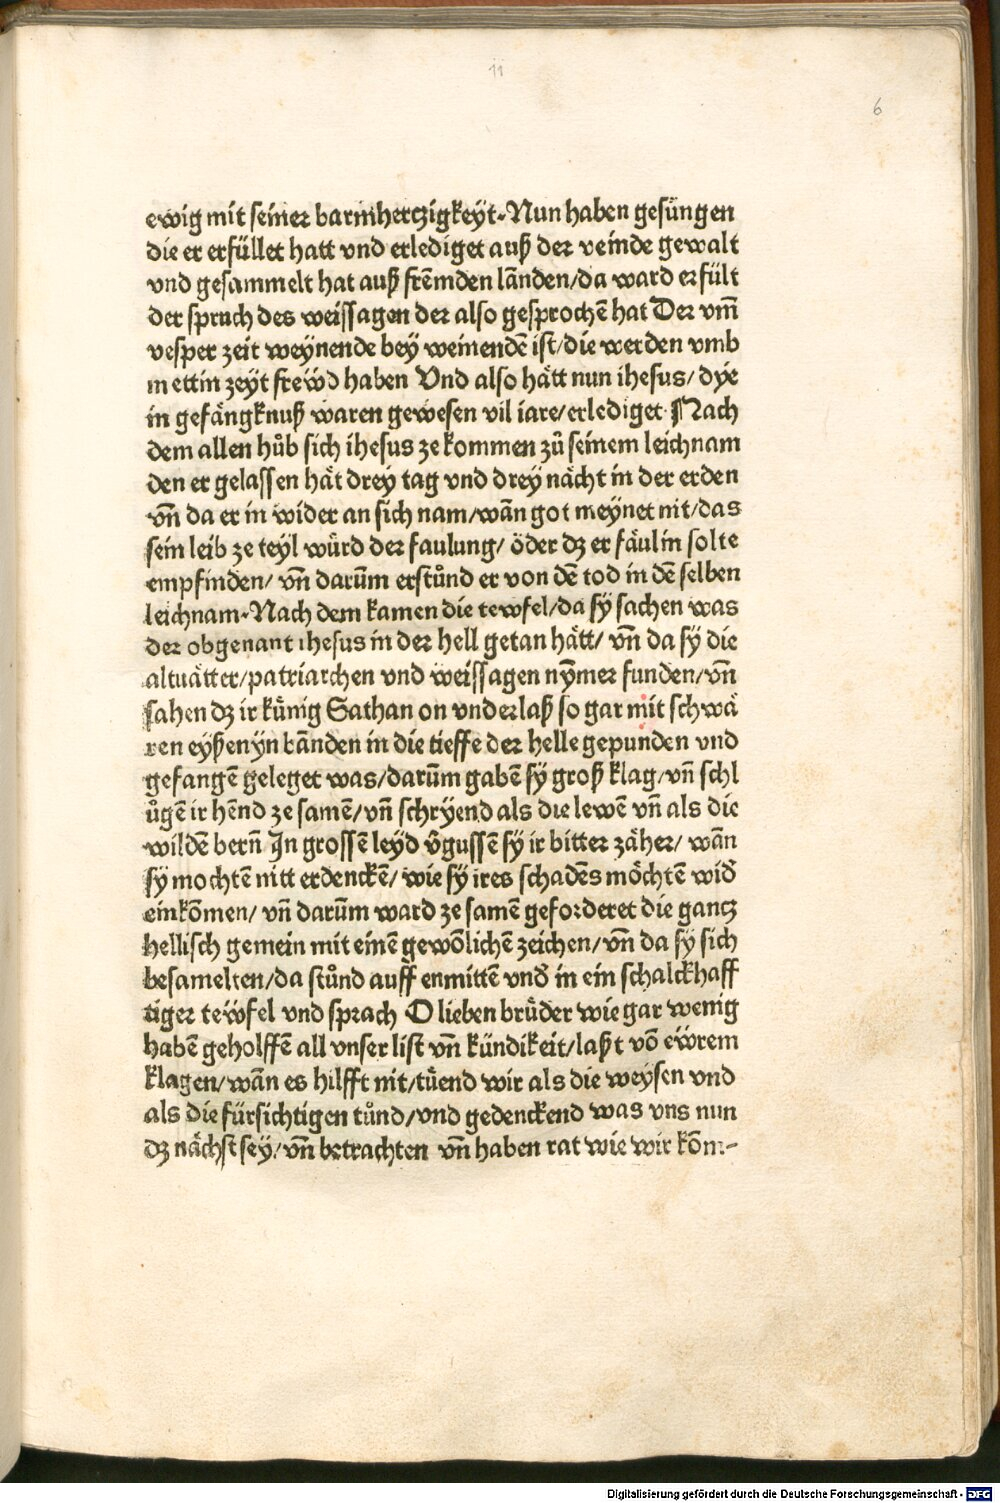 ii
6
ewig mit seiner barmhertzigkeyt. Nun haben gesüngen
die er erfüllet hatt vnd erlediget auß der veinde gewalt
vnd gesammelt hat auß frēmden lānden/da ward erfült
der spruch des weissagen der also gesprochē hat Der vm̄
vesper zeit weynende bey weinendē ist/die werden vmb
mettin zeyt frewd haben Vnd also hätt nun ihesus/dye
in gefängknuß waren gewesen vil iare/erlediget. Nach
dem allen hůb sich ihesus ze kommen zů seinem leichnam
den er gelassen hät drey tag vnd drey nächt in der erden
vn̄ da er in wider an sich nam/wān got meynet nit/das
sein leib ze teyl würd der faulung/ öder dz er fäulin solte
empfinden/ vn̄ darūm erstůnd er von dē tod in dē selben
leichnam. Nach dem kamen die tewfel/da sy sachen was
der obgenant ihesus in der hell getan hätt/ vn̄ da sy die
altuätter/patriarchen vnd weissagen nȳmer funden/vn̄
sahen dz ir künig Sathan on vnderlaß so gar mit schwä
ren eyßenyn bānden in die tieffe der helle gepunden vnd
gefangē geleget was/darūm gabē sy groß klag/vn̄ schl
ůgē ir hēnd ze samē/vn̄ schryend als die lewē vn̄ als die
wildē bern̄ In grossē leyd v̄gussē sy ir bitter zäher/ wān
sy mochtē nitt erdenckē/ wie sy ires schadēs möchtē wid̄
einkōmen/ vn̄ darūm ward ze samē geforderet die gantz
hellisch gemein mit einē gewōlichē zeichen/vn̄ da sy sich
besamelten/da stůnd auff enmittē vnd̄ in ein schalckhaff
tiger tewfel vnd sprach O lieben brüder wie gar wenig
habē geholffē all vnser list vn̄ kündikeit/laßt vō ewrem
klagen/wān es hilfft nit/tüend wir als die weysen vnd
als die fürsichtigen tůnd/vnd gedenckend was vns nun
dz nächst sey/vn̄ betrachten vn̄ haben rat wie wir kōm-
Digitalisierung gefördert durch die Deutsche Forschungsgemeinschaft - DFG